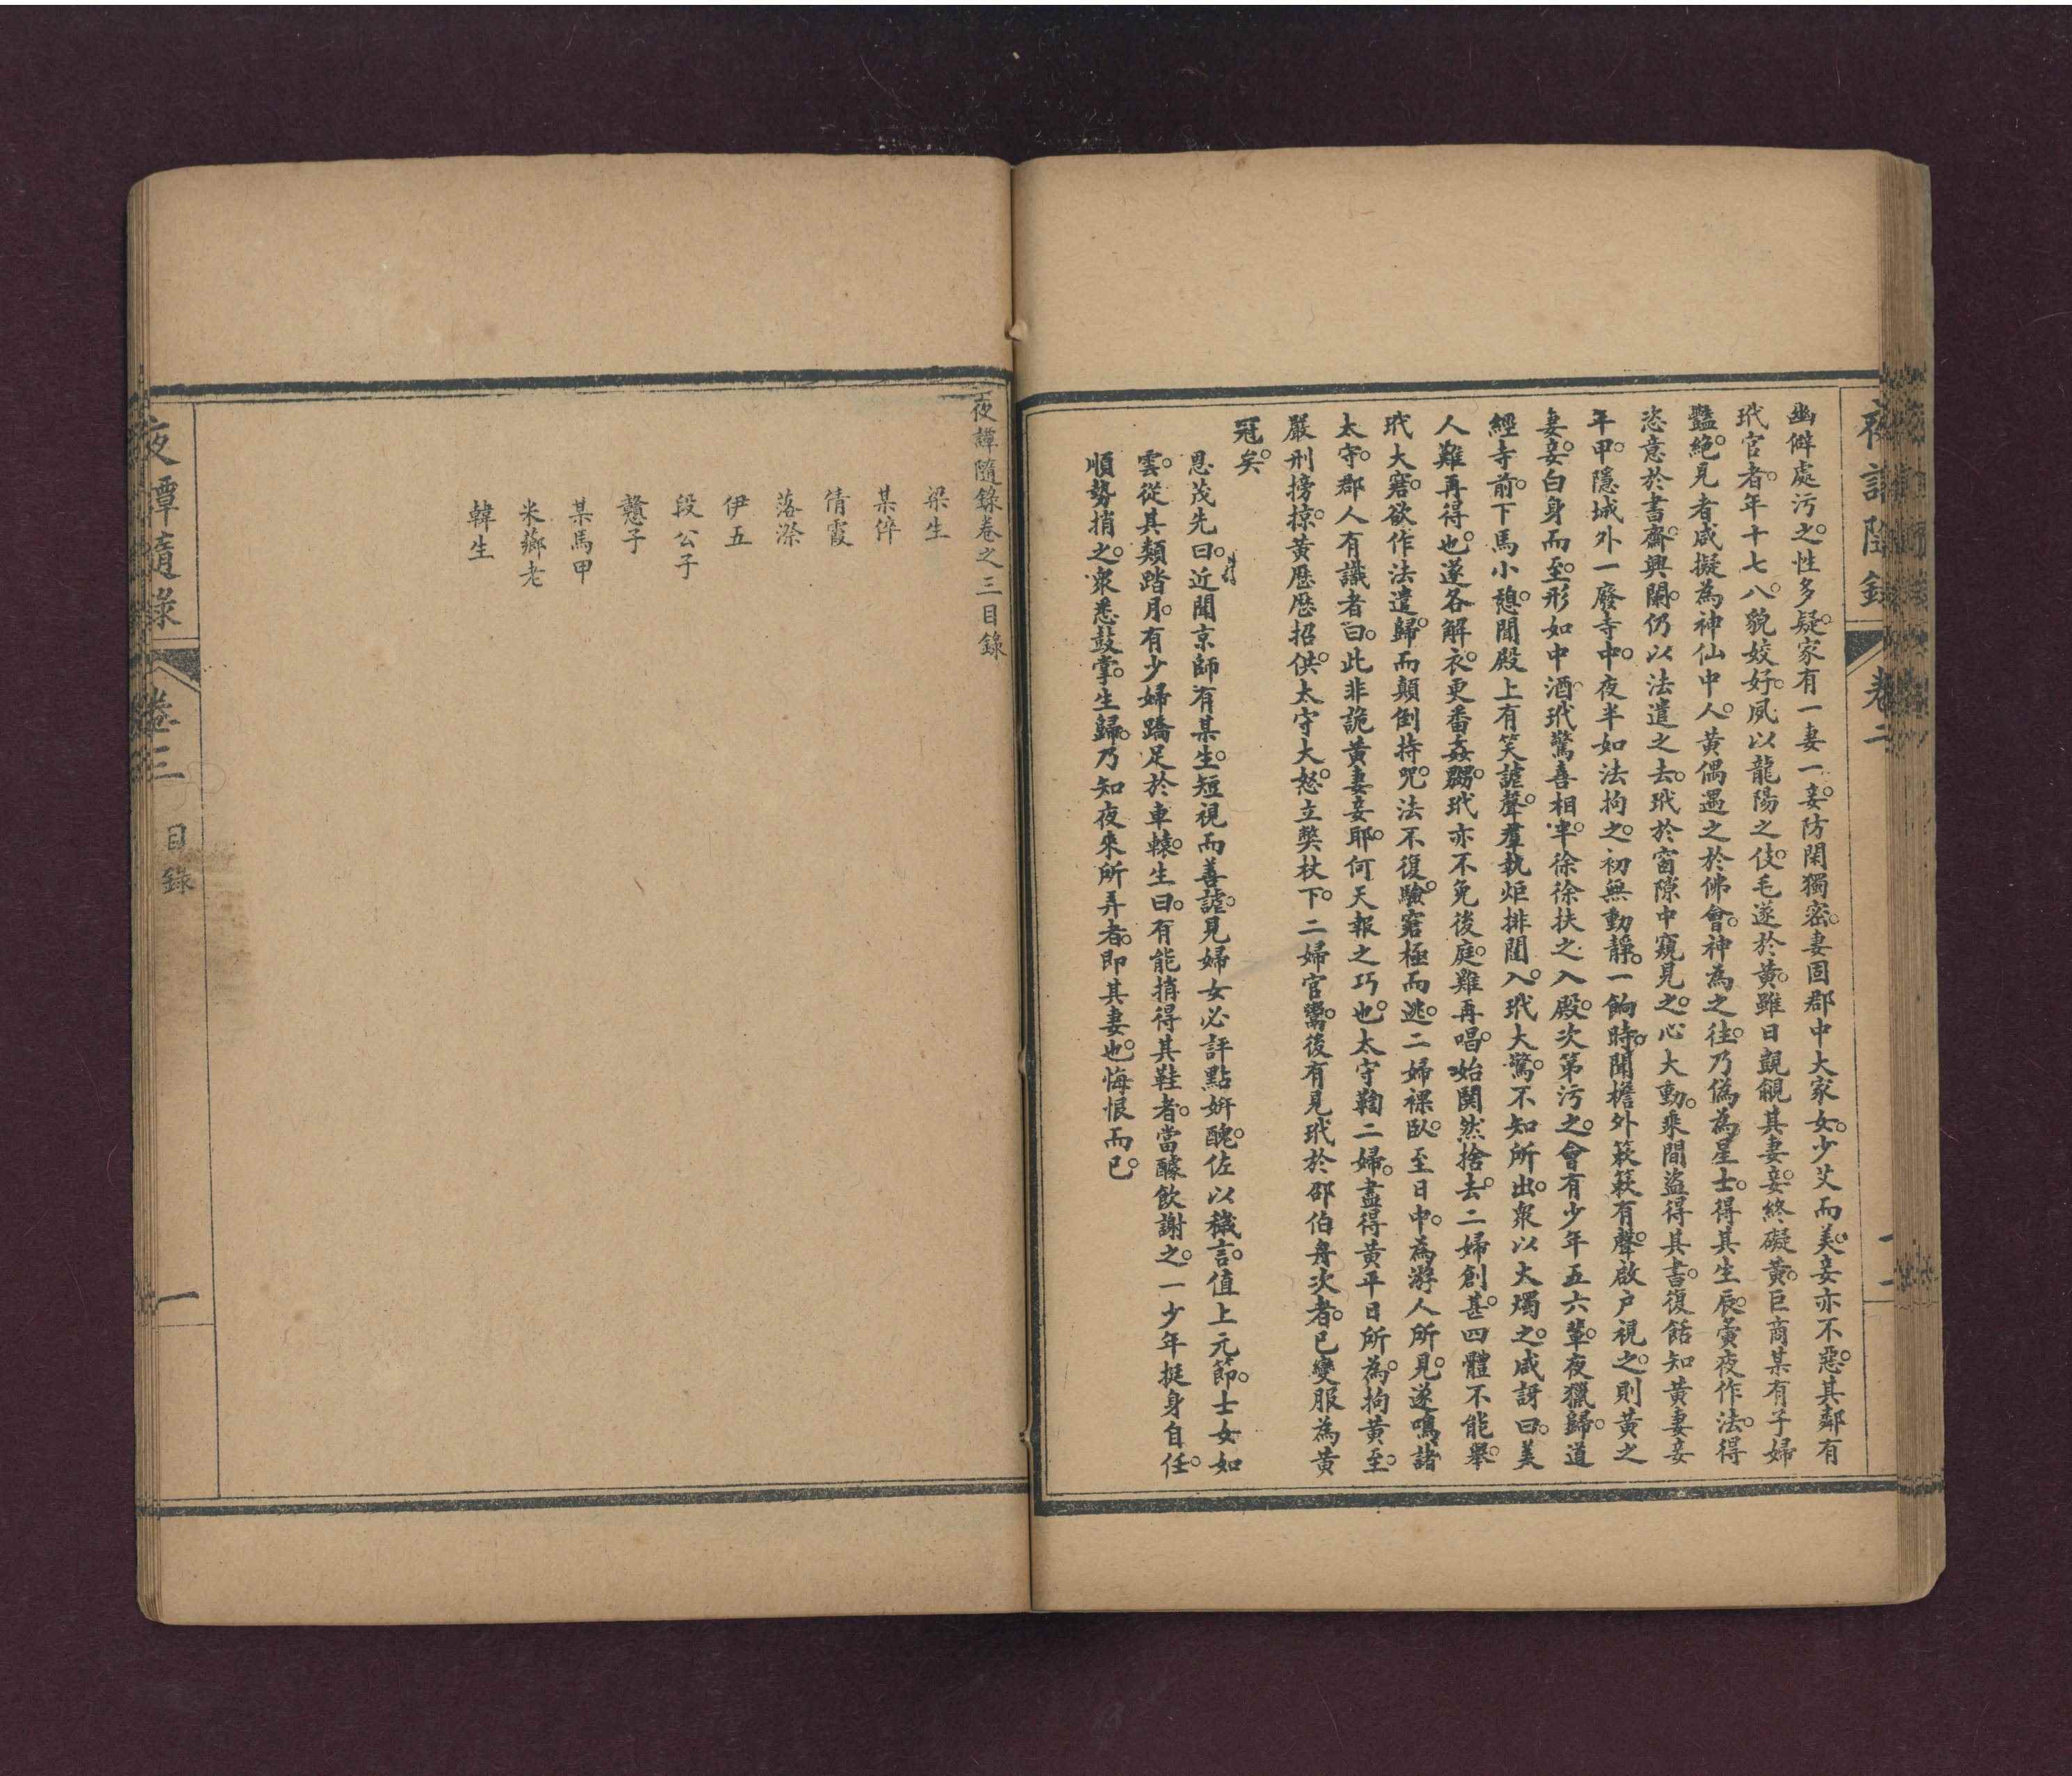 幽僻處污之。性多疑。家有一妻一妾。防閑獨密。妻固郡中大家女。少艾而美。妾亦不惡。其鄰有
玳官者。年十七八。貌姣好。夙以龍陽之伎。毛遂於黃。雖日覬覦其妻妾。終礙黃。巨商某有子婦
豔絕。見者咸擬為神仙中人。黃偶遇之於佛會。神為之往。乃偽為星士。得其生辰。黃夜作法。得
恣意於書齋。興闌。仍以法遣之去。玳於窗隙中窺見之。心大動。乘間盜得其書。復餂知黃妻妾
年甲。隱城外一廢寺中。夜半如法拘之。初無動靜。一餉時。聞檐外簌簌有聲。啟戶視之。則黃之
妻妾。白身而至。形如中酒。玳驚喜相半。徐徐扶之入殿。次第污之。會有少年五六輩。夜獵歸。道
經寺前。下馬小憩。聞殿上有笑謔聲。羣執炬排闥入。玳大驚。不知所出。衆以大燭之。咸訝曰。美
人難再得也。遂各解衣。更番姦嬲。玳亦不免後庭。難再唱。始閧然捨去。二婦創甚。四體不能舉。
玳大窘。欲作法遣歸。而顛倒持咒。法不復驗。窘極而逃。二婦裸臥。至日中。為游人所見。遂鳴諸
太守。郡人有識者。曰。此非詭黃妻妾耶。何天報之巧也。太守鞫二婦。盡得黃平日所為。拘黃至。
嚴刑搒掠。黃歷歷招供。太守大怒。立斃杖下。二婦官鬻。後有見玳於邵伯舟次者。已變服為黃
冠矣。
恩茂先曰。近聞京師有某生。短視而善謔。見婦女必評點妍醜。佐以穢言。值上元節。士女如
雲。從其類踏月。有少婦蹻足於車轅。生曰。有能捎得其鞋者。當醵飲謝之。一少年挺身自任。
順勢捎之。衆悉鼓掌。生歸。乃知夜來所弄者。即其妻也。悔恨而已。
卷二
夜譚隨錄卷之三目錄
梁生
某倅
倩霞
落漈
伊五
段公子
戇子
某馬甲
米薌老
韓生
夜譚隨錄
卷三
目錄
一